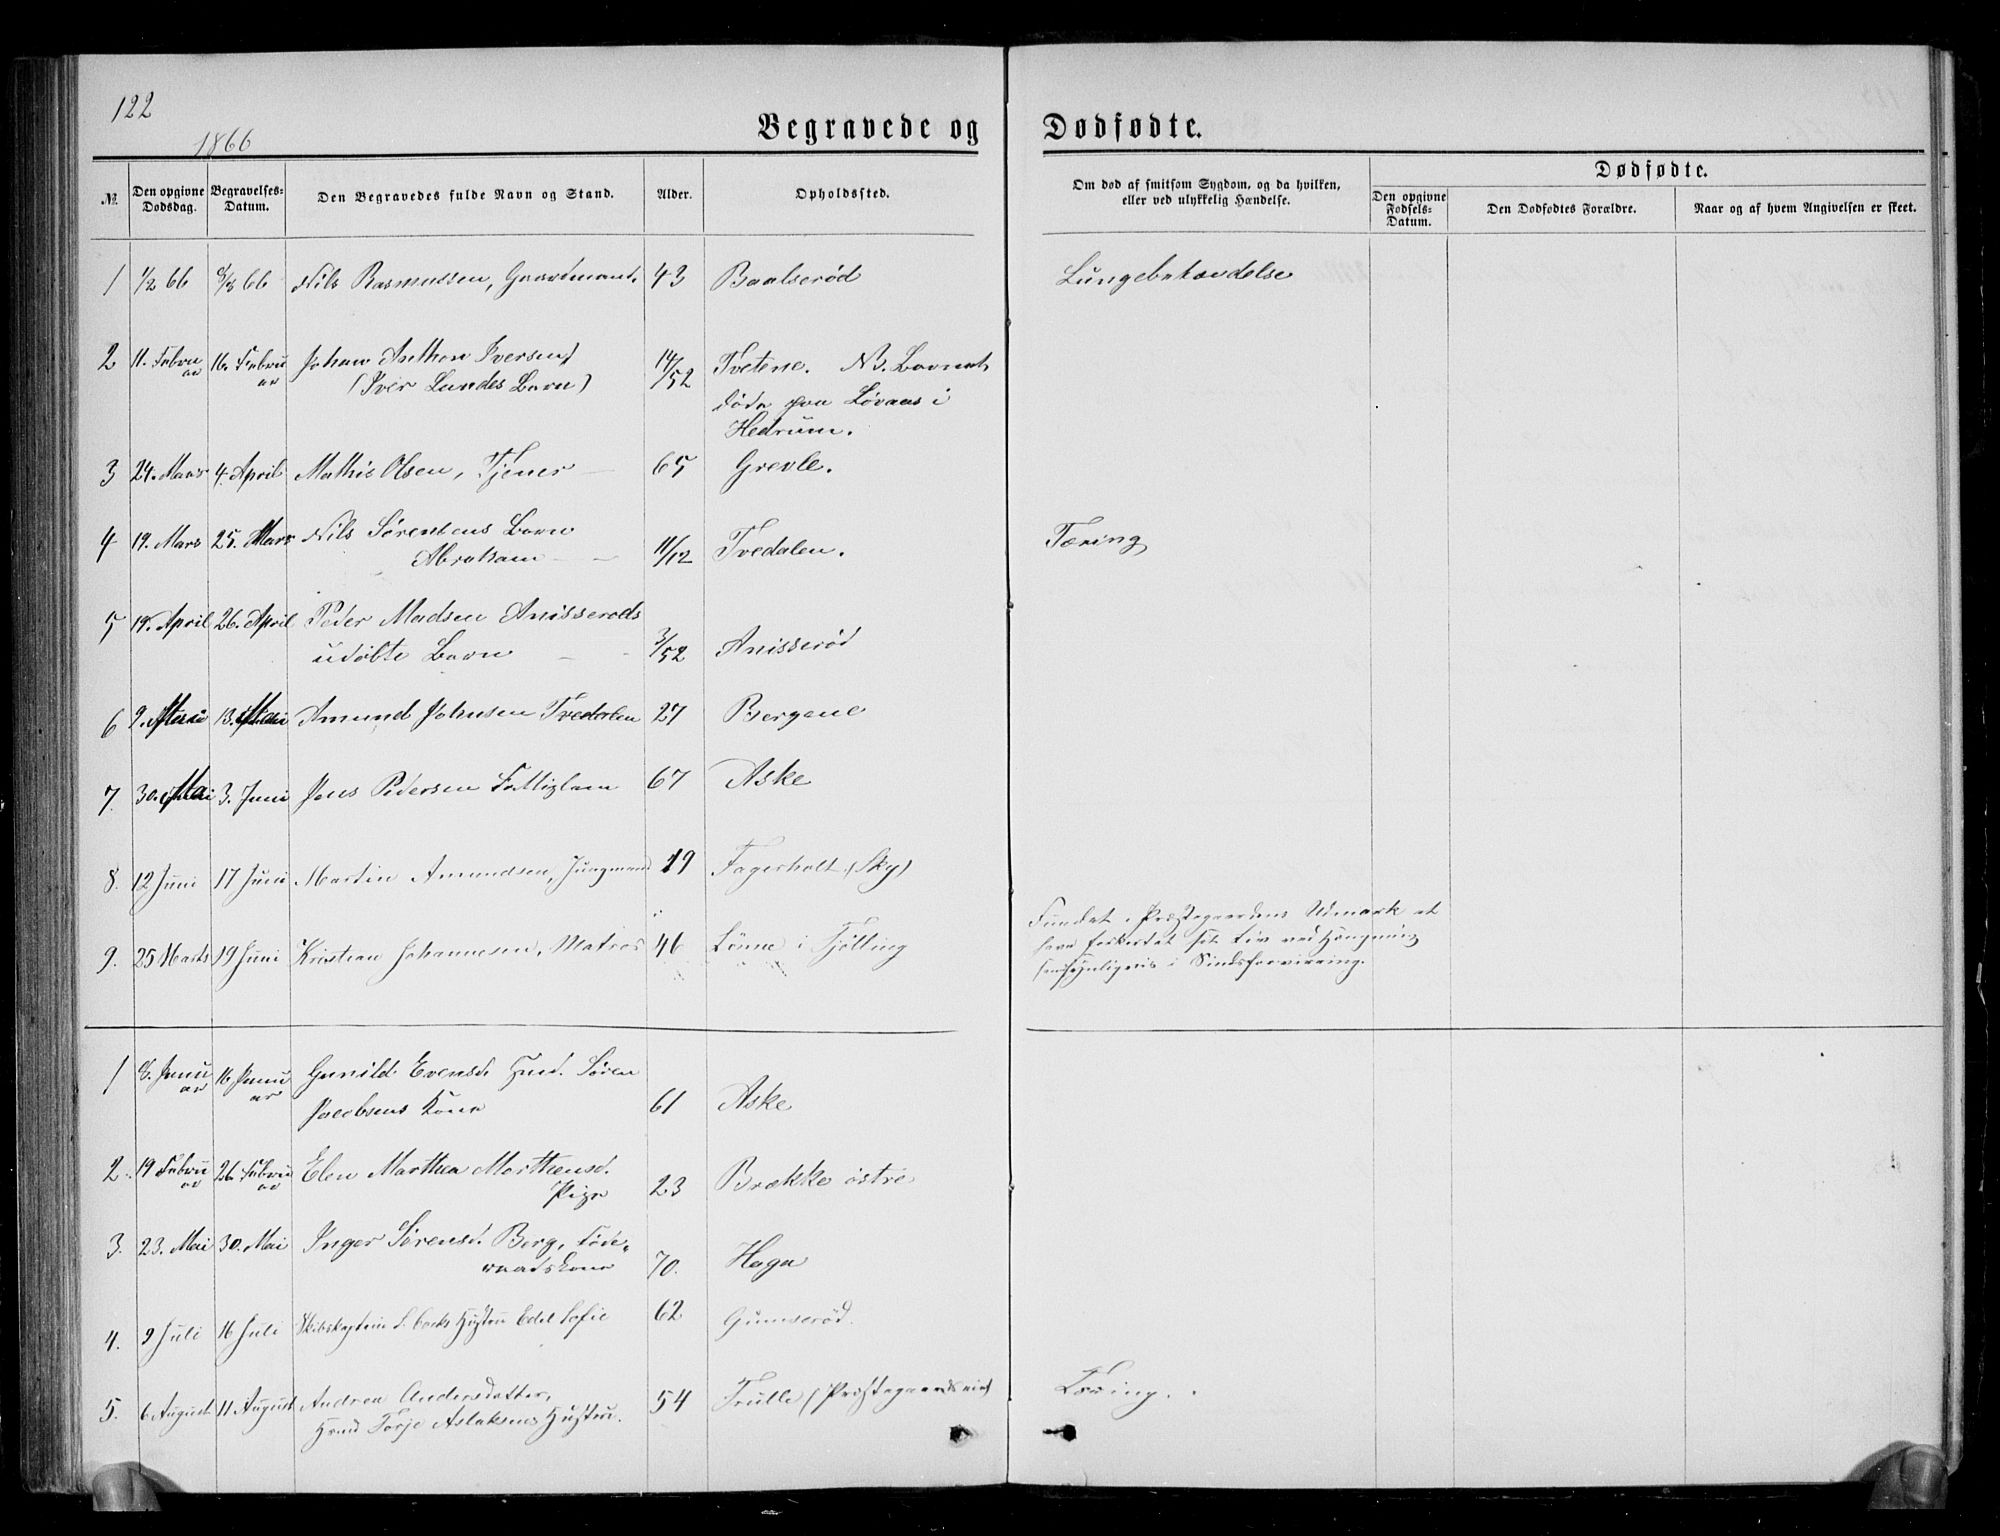 122
1866
Begravede og Dødfødte.
№. Den opgivne Dødsdag. Begravelses-Datum. Den Begravedes fulde Navn og Stand. Alder. Opholdssted. Om død af smitsom Sygdom, og da hvilken, eller ved ulykkelig Hændelse. Dødfødte. Den opgivne Fødsels-Datum. Den Dødfødtes Forældre. Naar og af hvem Angivelsen er skeet.
1 1/2 66 8/2 66 Nils Rasmussen, Gaardmand. 43 Baalserød Lungebetændelse
2 11. Februar 16. Februar Johan Anthon Iversen
(Iver Lundes Barn) 14/52 Tvetene. NB. Barnet
døde paa Løvaas i
Hedrum.
3 24. Mars 4. April Mathis Olsen, Tjener 65 Grevle.
4 19. Mars 25. Mars Nils Sørensens Barn
Abraham 11/12 Tvedalen. Tæring
5 19. April 26. April Peder Madsen Anisserøds
udøbte Barn 3/52 Anisserød
6 9. Mai 13. Mai Amund Johnsen Tvedalen 27 Bergene
7. 30. Mai 3. Juni Jens Pedersen Fattiglem 67 Aske
8. 12 Juni 17 Juni Martin Amundsen, Jungmand 19 Fagerholt (Sky)
9. 25 Marts 19 Juni Kristian Johannesen, Matros 46 Lønne i Tjølling
Fundet i Præstegaardens Udmark at
have forkortet sit Liv ved Hængning
sandsynligvis i Sindsforvirring.
1 8. Januar 16. Januar Gunild Evensd. Husm. Søren
Jacobsens Kone 61 Aske
2. 19 Februar 26. Februar Elen Marthea Morthensd.
Pige 23 Brække østre
3. 23. Mai 30. Mai Inger Sørensd. Berg, Føde-
raadskone 70. Haga
4. 9 Juli 16 Juli Skibskaptein Hustru Edel Sofie 62 Gunnerød.
5. 6 August 11 August Andrea Andersdatter,
Hmd Torje Aslaksens Hustru. 54 Trulle (Præstegaardseiet) Tæring.